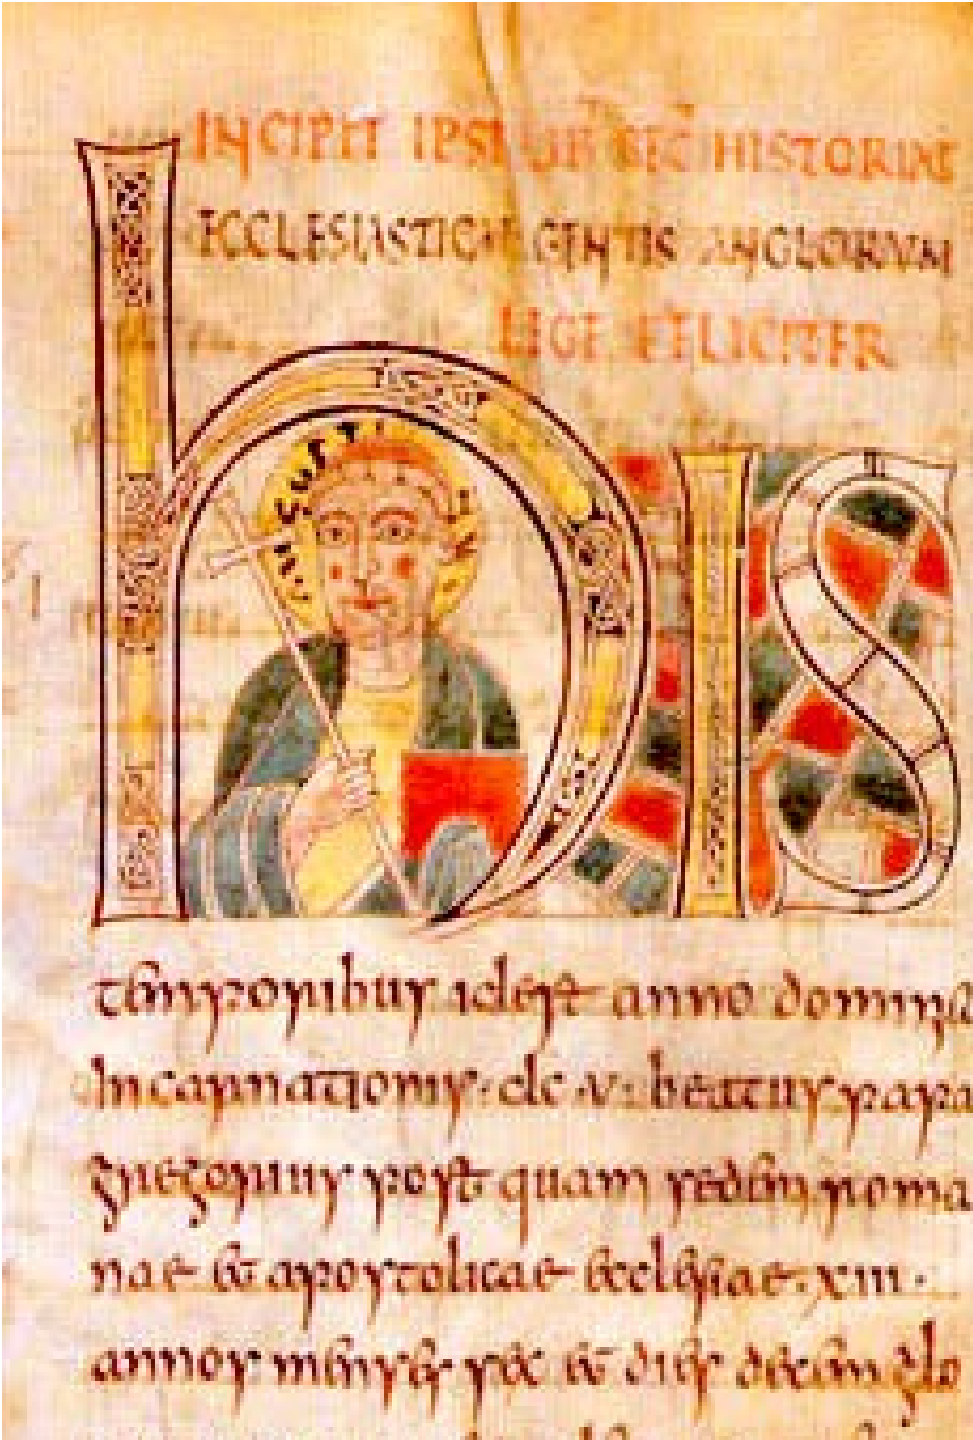 INCIPIT IPSIUS SEC HISTORIAE
ECCLESIASTICAE GENTIS ANGLORVM
LEGE FELICITER
AUGUS
hIS
temporibus idest anno dominicae
Incarnationis · dc · v · beatus papa
gregorius post quam sedem roma
nae et apostolicae ecclesiae · xiii ·
annos menses sex et dies decem glo